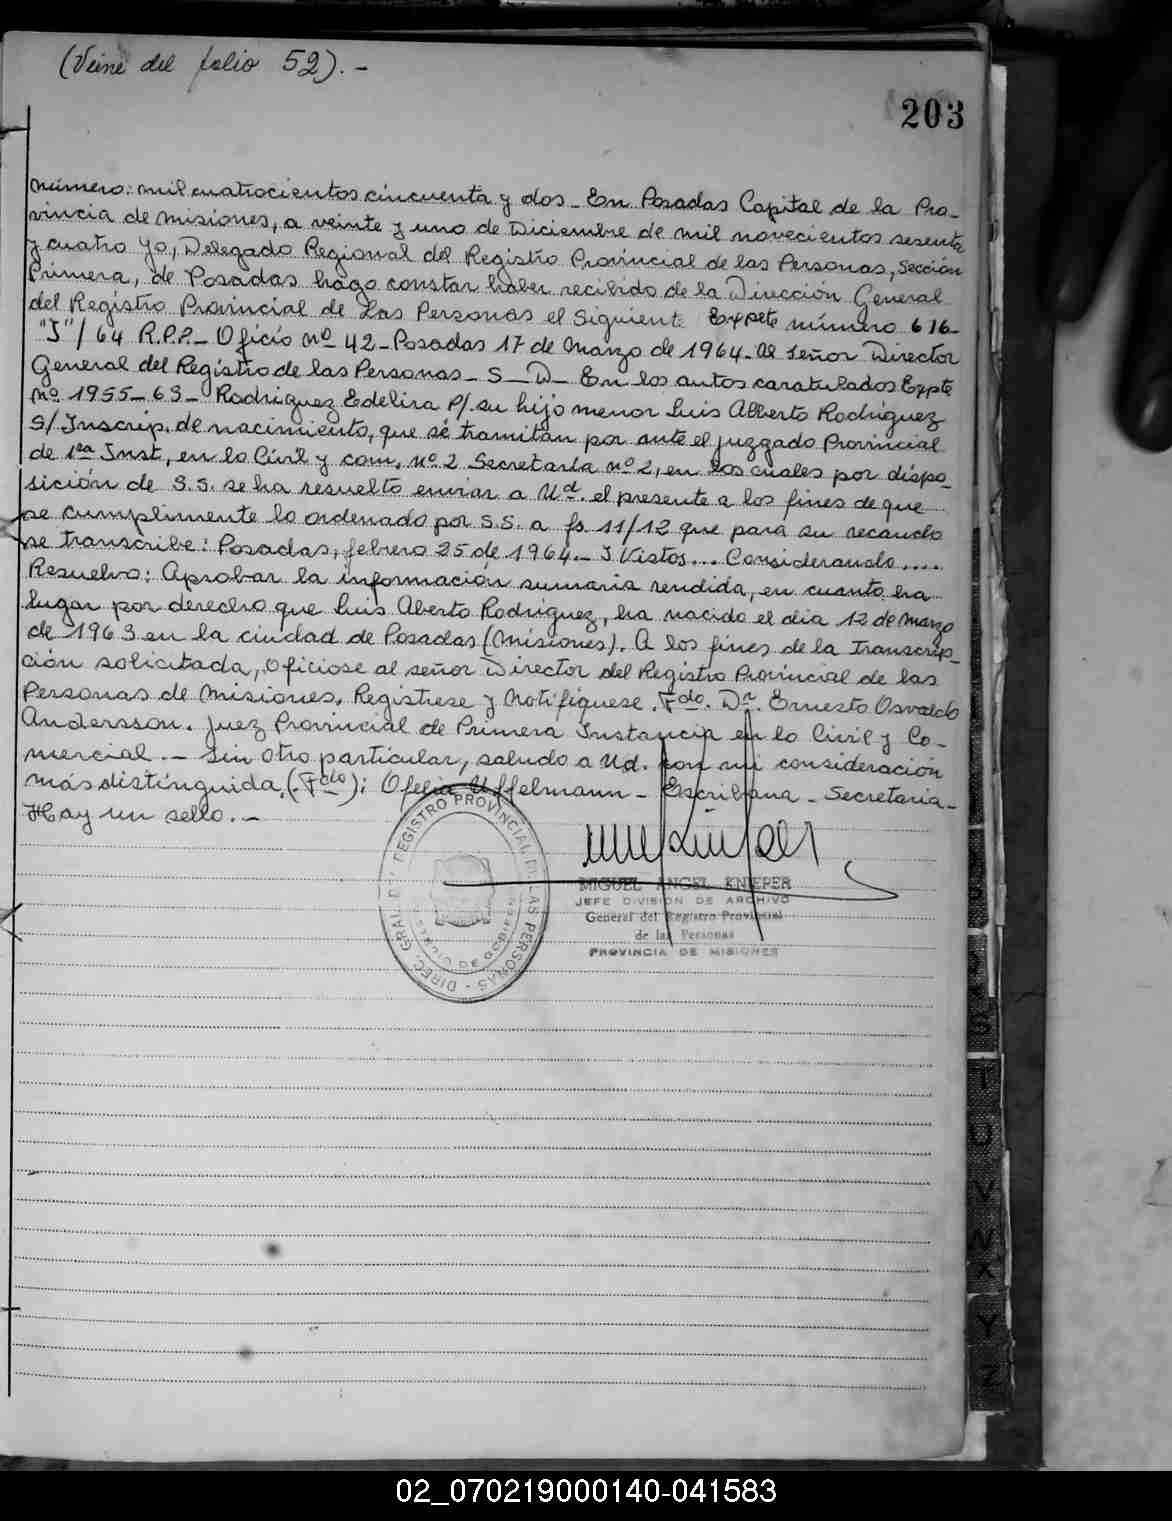 (Veine del folio 52). -
203
Número: mil cuatrocientos cincuenta y dos - En Posadas Capital de la Pro-
vincia de Misiones, a veinte y uno de Diciembre de mil novecientos sesenta
y cuatro Yo, Delegado Regional del Registro Provincial de las Personas, Sección
Primera, de Posadas hago constar haber recibido de la Dirección General
del Registro Provincial de Las Personas el Siguiente Expete número 616-
"J"/64 R.P.P. - Oficio nº 42 - Posadas 17 de Marzo de 1964 - Al Señor Director
General del Registro de las Personas - S - D - En los autos caratulados Expte
nº 1955-63 - Rodriguez Edelira P/. su hijo menor Luis Alberto Rodriguez
S/. Inscrip. de nacimiento, que se tramitan por ante el juzgado Provincial
de 1ra Inst, en lo Civil y com. nº 2 Secretaría nº 2, en los cuales por dispo-
sición de S.S. se ha resuelto enviar a Ud. el presente a los fines de que
se cumplimente lo ordenado por S.S. a fs. 11/12 que para su recaudo
se transcribe: Posadas, febrero 25 de 1964. - Y Vistos... Considerando....
Resuelvo: Aprobar la información sumaria rendida, en cuanto ha
lugar por derecho que Luis Aberto Rodriguez, ha nacido el dia 12 de Marzo
de 1963 en la ciudad de Posadas (Misiones). A los fines de la transcrip-
ción solicitada, Oficiose al señor Director del Registro Provincial de las
Personas de Misiones. Registrese y Notifíquese. Fdo. Dr. Ernesto Osvaldo
Andersson. Juez Provincial de Primera Instancia en lo Civil y Co-
mercial. - Sin otro particular, saludo a Ud. con mi consideración
más distinguida. (Fdo): Ofelia Uffelmann - Escribana - Secretaria -
Hay un sello. -
DIREC. GRAL. DEL REGISTRO PROVINCIAL DE LAS PERSONAS
MIGUEL ANGEL KNIEPER
JEFE DIVISION DE ARCHIVO
General del Registro Provincial
de las Personas
PROVINCIA DE MISIONES
T
U
V
W
X
Y
Z
02_070219000140-041583